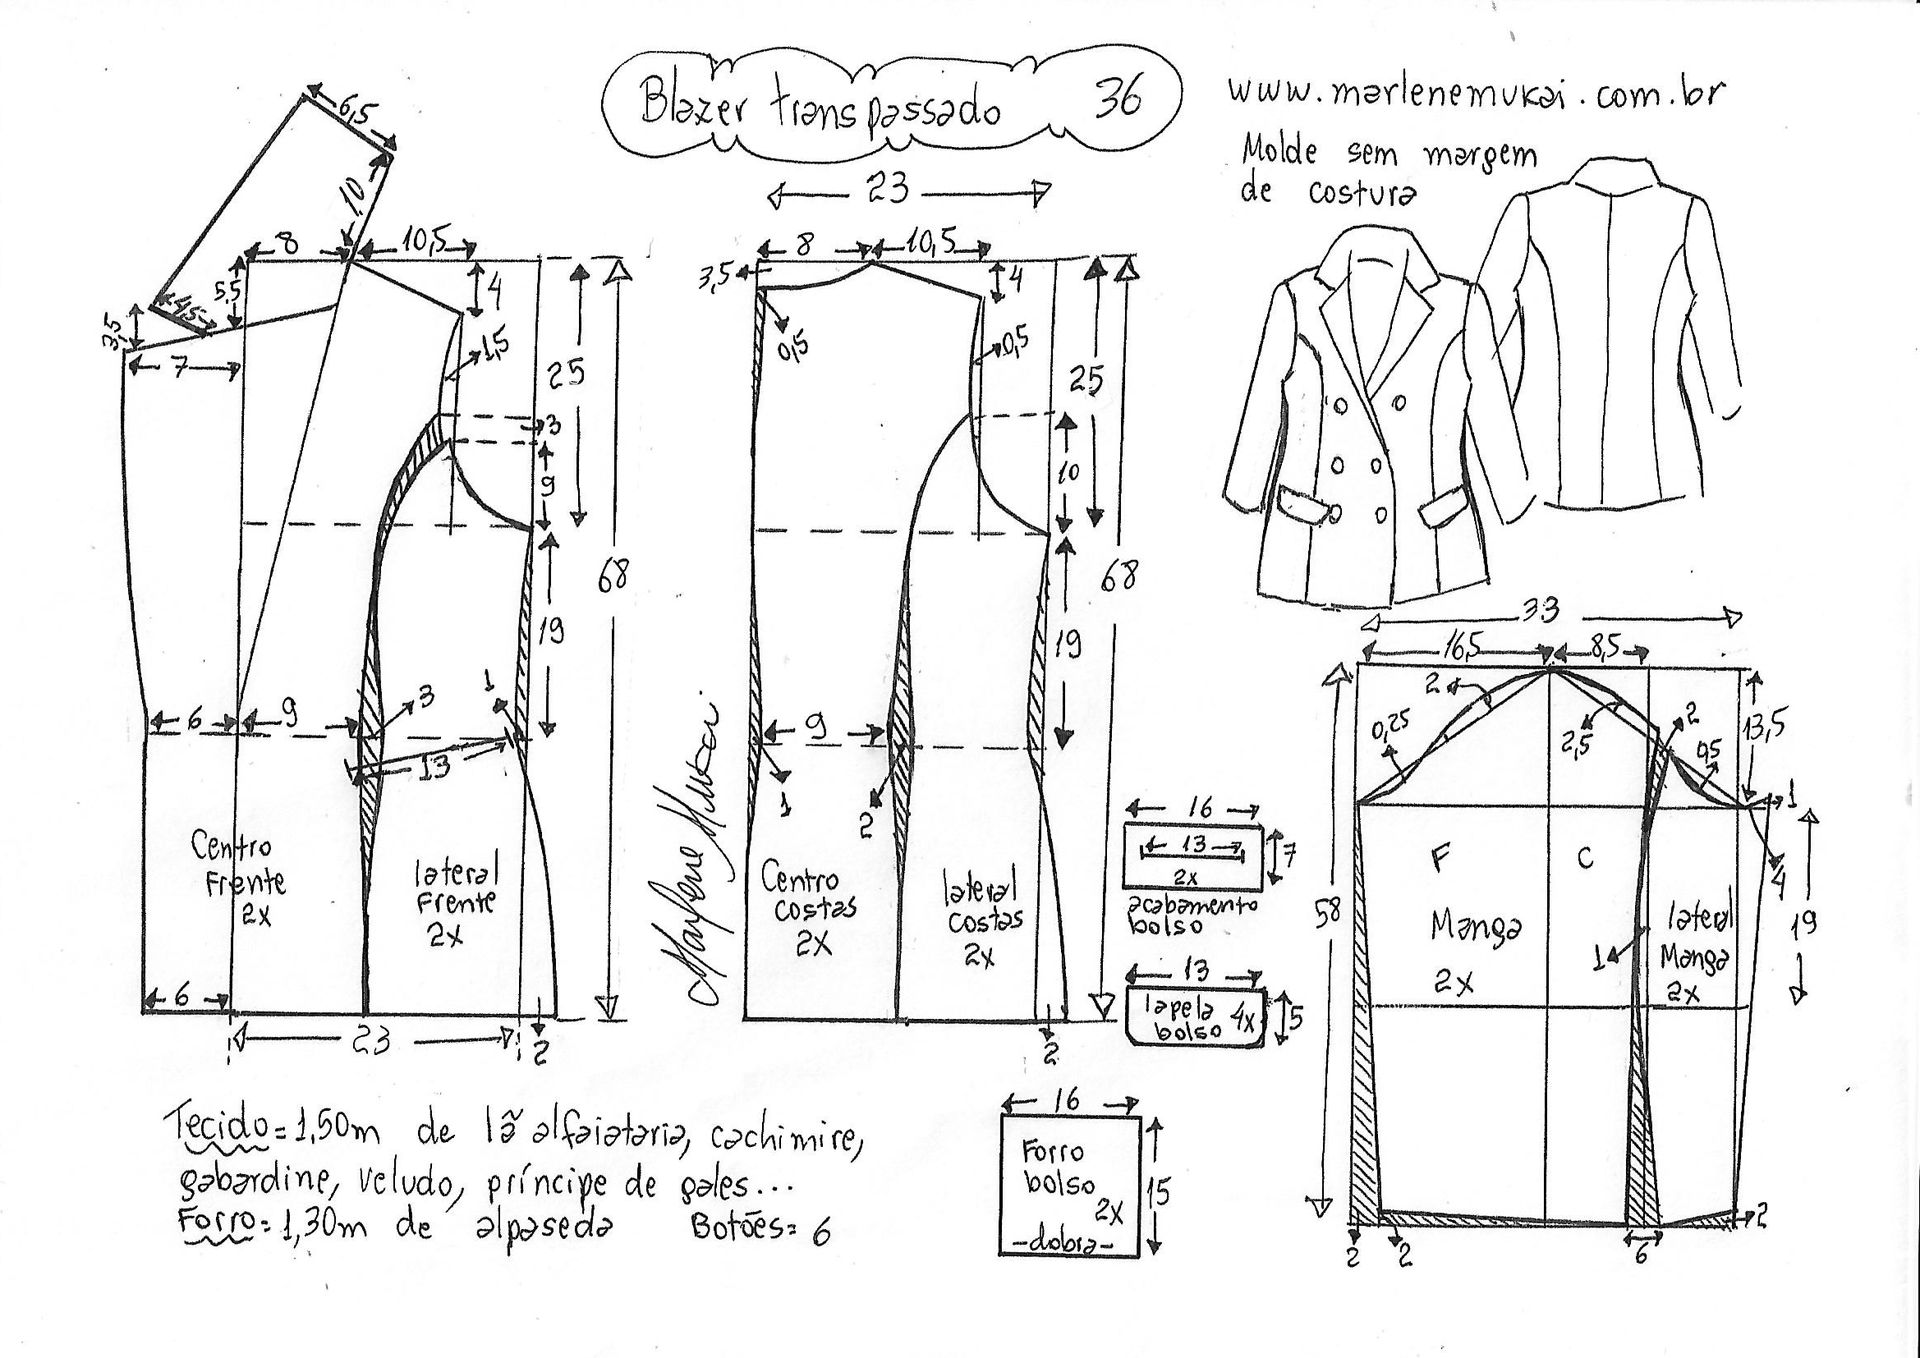 Blazer transpassado 36
www.marlenemukai.com.br
Molde sem margem
de costura
6,5
10
8
10,5
5,5
4
4,5
3,5
7
1,5
25
3
9
68
19
6
9
3
1
13
Centro
Frente
2x
lateral
Frente
2x
6
23
2
23
8
10,5
3,5
4
0,5
0,5
25
10
68
19
9
1
2
Centro
costas
2x
lateral
costas
2x
2
Marlene Mukai
16
13
7
2x
acabamento
bolso
13
lapela 4x
bolso
5
16
Forro
bolso
2x
-dobra-
15
33
16,5
8,5
2
0,25
2,5
2
0,5
13,5
1
4
F
C
58
19
Manga
2x
1
lateral
Manga
2x
2
2
6
2
Tecido=1,50m de lã alfaiataria, cachimire,
gabardine, veludo, príncipe de gales...
Forro=1,30m de alpaseda Botões=6